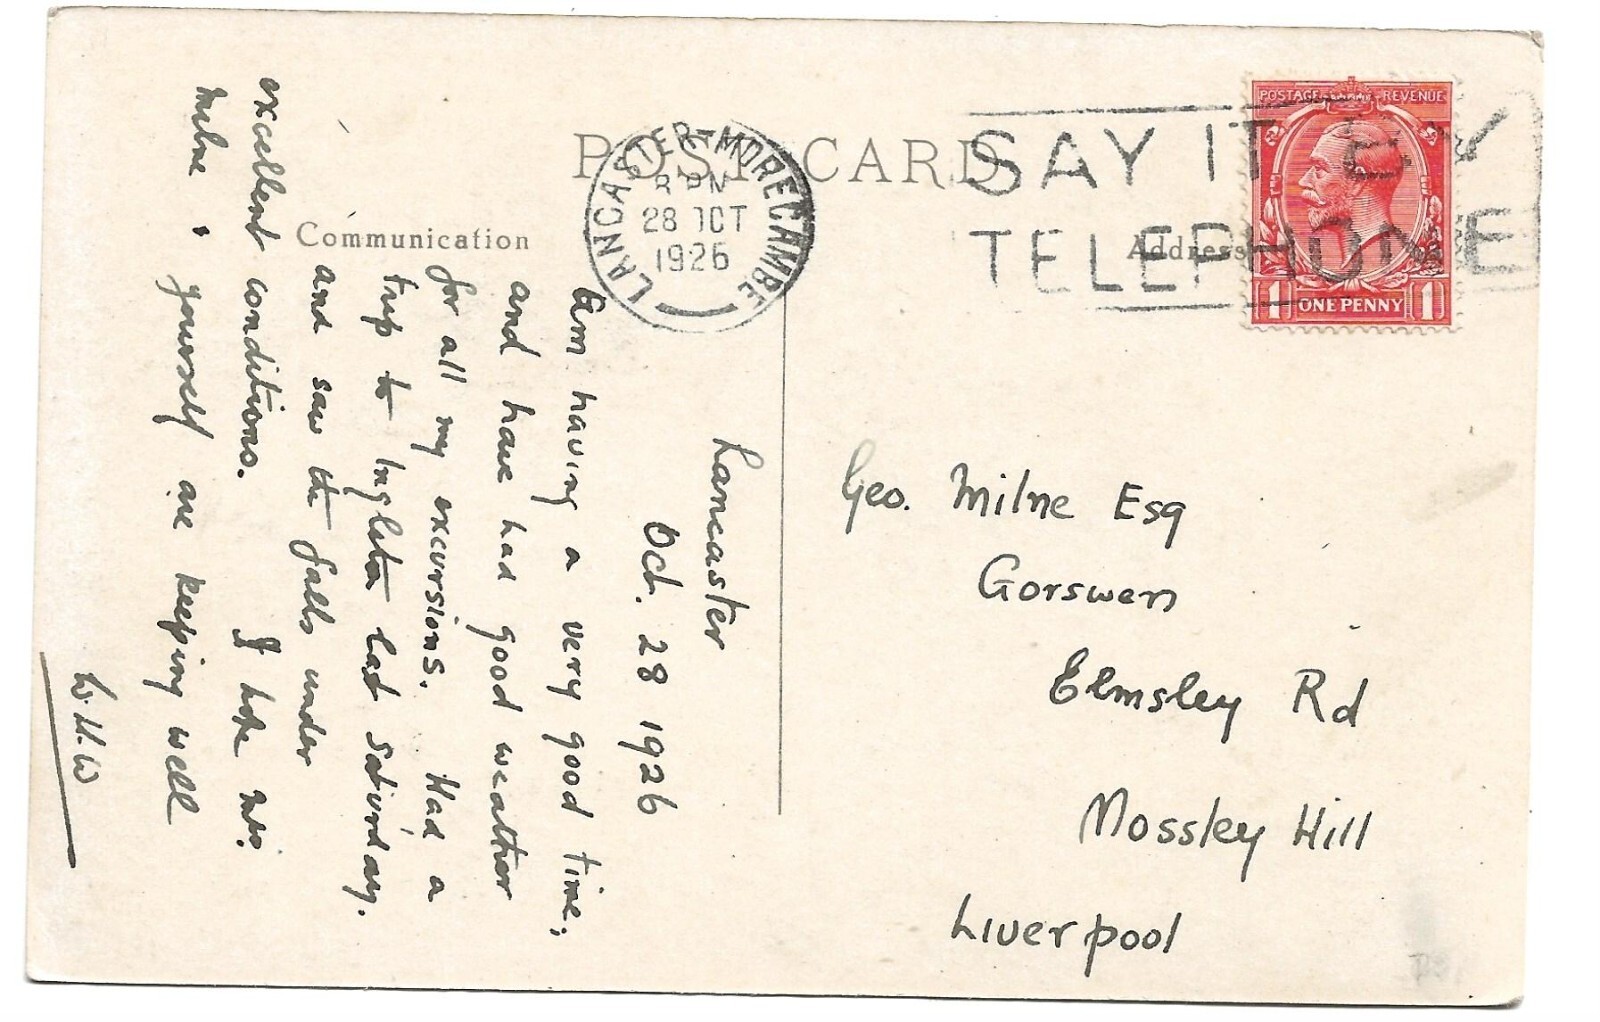 POST CARD
Communication
Address
LANCASTER-MORECAMBE
8 PM
28 OCT
1926
SAY IT BY
TELEPHONE
POSTAGE REVENUE
1 ONE PENNY 1
Lancaster
Oct. 28 1926
Am having a very good time,
and have had good weather
for all my excursions. Had a
trip to Ingleton last Saturday.
and saw the falls under
excellent conditions. I hope Mrs.
Milne & yourself are keeping well
W.H.W
Geo. Milne Esq
Gorswen
Elmsley Rd
Mossley Hill
Liverpool